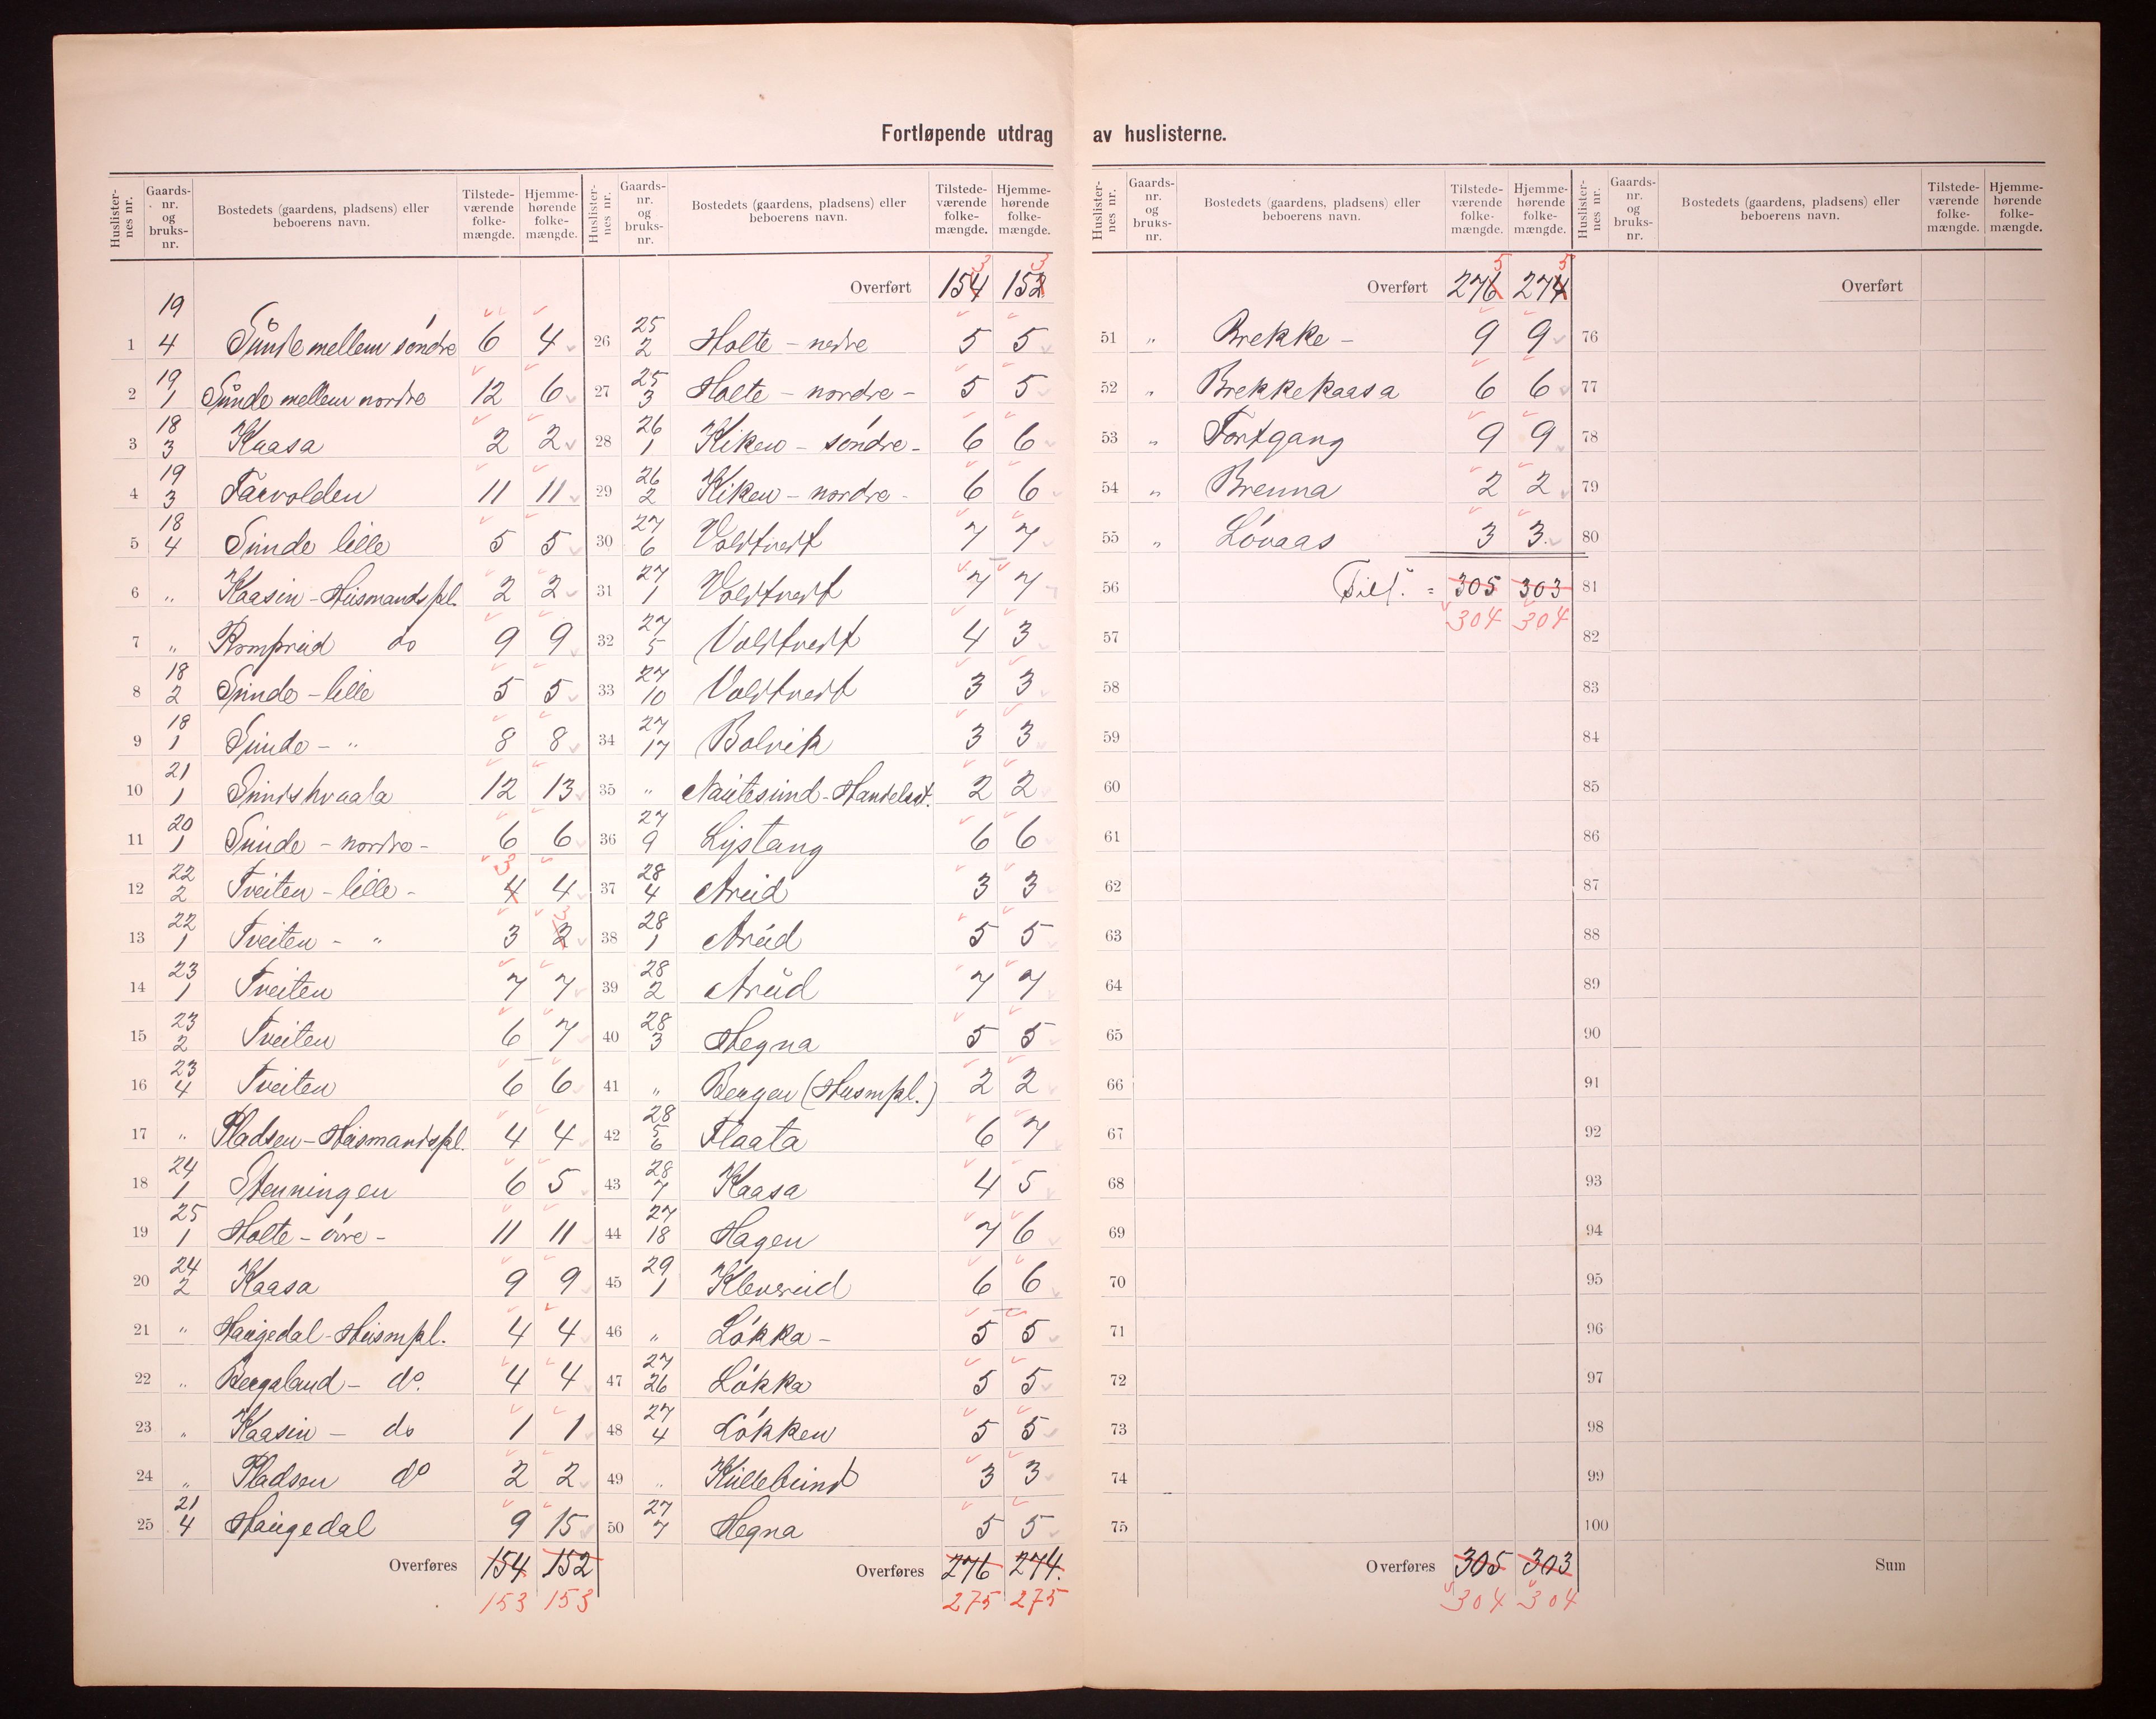 Fortløpende utdrag av huslisterne.
Huslisternes nr. Gaards-nr. og bruks-nr. Bostedets (gaardens, pladsens) eller beboerens navn. Tilstedeværende folkemængde. Hjemmehørende folkemængde.
1 19 4 Sunde mellem søndre 6 4
2 19 1 Sunde mellem nordre 12 6
3 18 3 Kaasa 2 2
4 19 3 Farvolden 11 11
5 18 4 Sunde lille 5 5
6 „ Kaasin - Husmandspl. 2 2
7 „ Romprud do 9 9
8 18 2 Sunde - lille 5 5
9 18 1 Sunde - „ 8 8
10 21 1 Sundskvaala 12 13
11 20 1 Sunde - nordre - 6 6
12 22 2 Tveiten - lille - 4 3 4
13 22 1 Tveiten - „ 3 2 3
14 23 1 Tveiten 7 7
15 23 2 Tveiten 6 7
16 23 4 Tveiten 6 6
17 „ Pladsen - Husmandspl. 4 4
18 24 1 Stenningen 6 5
19 25 1 Holte - øvre - 11 11
20 24 2 Kaasa 9 9
21 „ Haugedal - Husmpl. 4 4
22 „ Bergaland - do. 4 4
23 „ Kaasin - do 1 1
24 „ Pladsen do 2 2
25 21 4 Haugedal 9 15
Overføres 154 152
153 153
Huslisternes nr. Gaards-nr. og bruks-nr. Bostedets (gaardens, pladsens) eller beboerens navn. Tilstedeværende folkemængde. Hjemmehørende folkemængde.
Overført 154 3 152 3
26 25 2 Holte - nedre 5 5
27 25 3 Holte - nordre - 5 5
28 26 1 Kiken - søndre - 6 6
29 26 2 Kiken - nordre - 6 6
30 27 6 Voldtvedt 7 7
31 27 1 Voldtvedt 7 7
32 27 5 Voldtvedt 4 3
33 27 10 Voldtvedt 3 3
34 27 17 Bolvik 3 3
35 „ Nautesund - Handelsst. 2 2
36 27 9 Lystang 6 6
37 28 4 Arud 3 3
38 28 1 Arud 5 5
39 28 2 Arud 7 7
40 28 3 Hegna 5 5
41 „ Bergen (Husmpl.) 2 2
42 28 5 6 Flaata 6 7
43 28 7 Kaasa 4 5
44 27 18 Hagen 7 6
45 29 1 Klevsrud 6 6
46 „ Løkka - 5 5
47 27 26 Løkka 5 5
48 27 4 Løkken 5 5
49 „ Kullebund 3 3
50 27 7 Hegna 5 5
Overføres 276 274.
275 275
Huslisternes nr. Gaards-nr. og bruks-nr. Bostedets (gaardens, pladsens) eller beboerens navn. Tilstedeværende folkemængde. Hjemmehørende folkemængde.
Overført 276 5 274 5
51 „ Brekke - 9 9
52 „ Brekkekaasa 6 6
53 „ Fortgang 9 9
54 „ Brenna 2 2
55 „ Løvaas 3 3
56 Tils. = 305 303
57 304 304
58
59
60
61
62
63
64
65
66
67
68
69
70
71
72
73
74
75
Overføres 305 303
304 304
Huslisternes nr. Gaards-nr. og bruks-nr. Bostedets (gaardens, pladsens) eller beboerens navn. Tilstedeværende folkemængde. Hjemmehørende folkemængde.
Overført
76
77
78
79
80
81
82
83
84
85
86
87
88
89
90
91
92
93
94
95
96
97
98
99
100
Sum